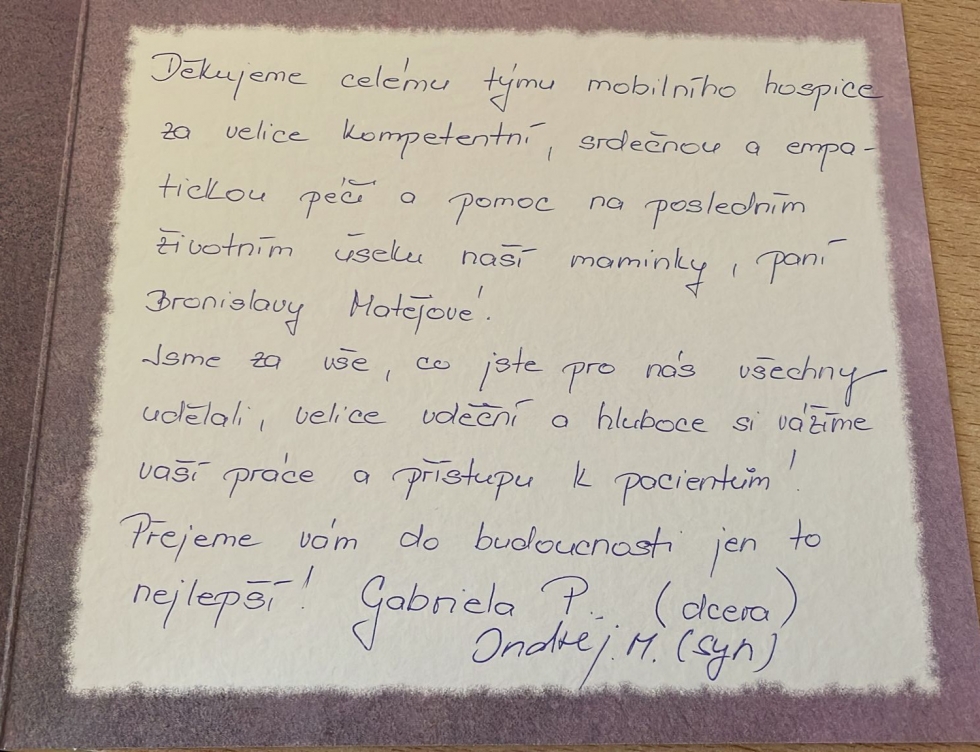 Děkujeme celému týmu mobilního hospice
za velice kompetentní, srdečnou a empa-
tickou péči a pomoc na posledním
životním úseku naší maminky, paní
Bronislavy Matějové!
Jsme za vše, co jste pro nás všechny
udělali, velice vděční a hluboce si vážíme
vaší práce a přístupu k pacientům!
Přejeme vám do budoucnosti jen to
nejlepší! Gabriela P. (dcera)
Ondřej. M. (syn)